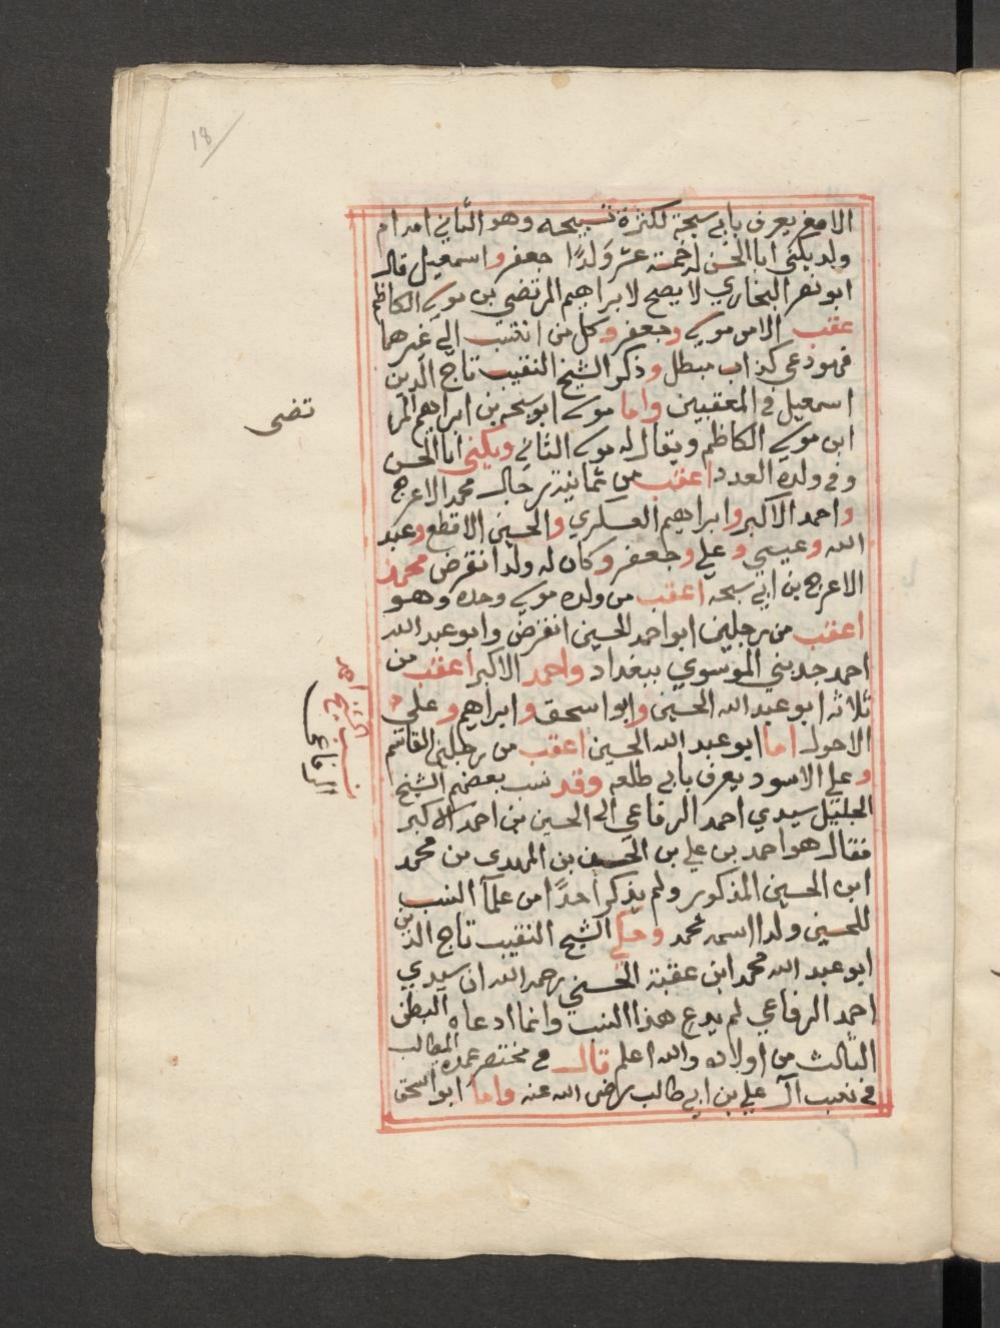 18
الاصغر يعرف بابي سبحة لكثرة تسبيحه وهو الثاني امه ام
ولد يكني ابا الحسن له خمسة عشر ولدًا جعفر واسمعيل قال
ابو نصر البخاري لا يصح لابراهيم المرتضي بن موسي الكاظم
عقب الا من موسي وجعفر وكل من انتسب الي غيرهما
فهو دعي كذاب مبطل وذكر الشيخ النقيب تاج الدين
اسمعيل في المعقبين واما موسي ابو سبحه بن ابراهيم المر
تضي
ابن موسي الكاظم ويقال له موسي الثاني ويكني ابا الحسن
وفي ولده العدد اعقب من ثمانية رجال محمد الاعرج
واحمد الاكبر وابراهيم العسكري والحسين الاقطع وعبد
الله وعيسي وعلي وجعفر وكان له ولد انقرض محمد
الاعرج بن ابي سبحه اعقب من ولده موسي وحده وهو
اعقب من رجلين ابو احمد الحسين انقرض وابو عبد الله
احمد جد بني الموسوي ببغداد واحمد الاكبر اعقب من
ثلاثه ابو عبد الله الحسين وابو اسحق وابراهيم وعلي
الاحول اما ابو عبد الله الحسين اعقب من رجلين القاسم
وعلي الاسود يعرف بابي طلعه وقد نسب بعضهم الشيخ
الجليل سيدي احمد الرفاعي الي الحسين بن احمد الاكبر
فقال هو احمد بن علي بن الحسين بن المهدي من محمد
ابن الحسين المذكور ولم يذكر احدًا من علمآ النسب
للحسين ولدا اسمه محمد وحكي الشيخ النقيب تاج الدين
ابو عبد الله محمد ابن عقبة الحسني رحمه الله ان سيدي
احمد الرفاعي لم يدع هذا النسب وانما ادعاه البطن
الثالث من اولاده والله اعلم قال في مختصر عمدة المطالب
في نسب آل علي بن ابي طالب رضي الله عنه واما ابو اسحق
الرفاعي